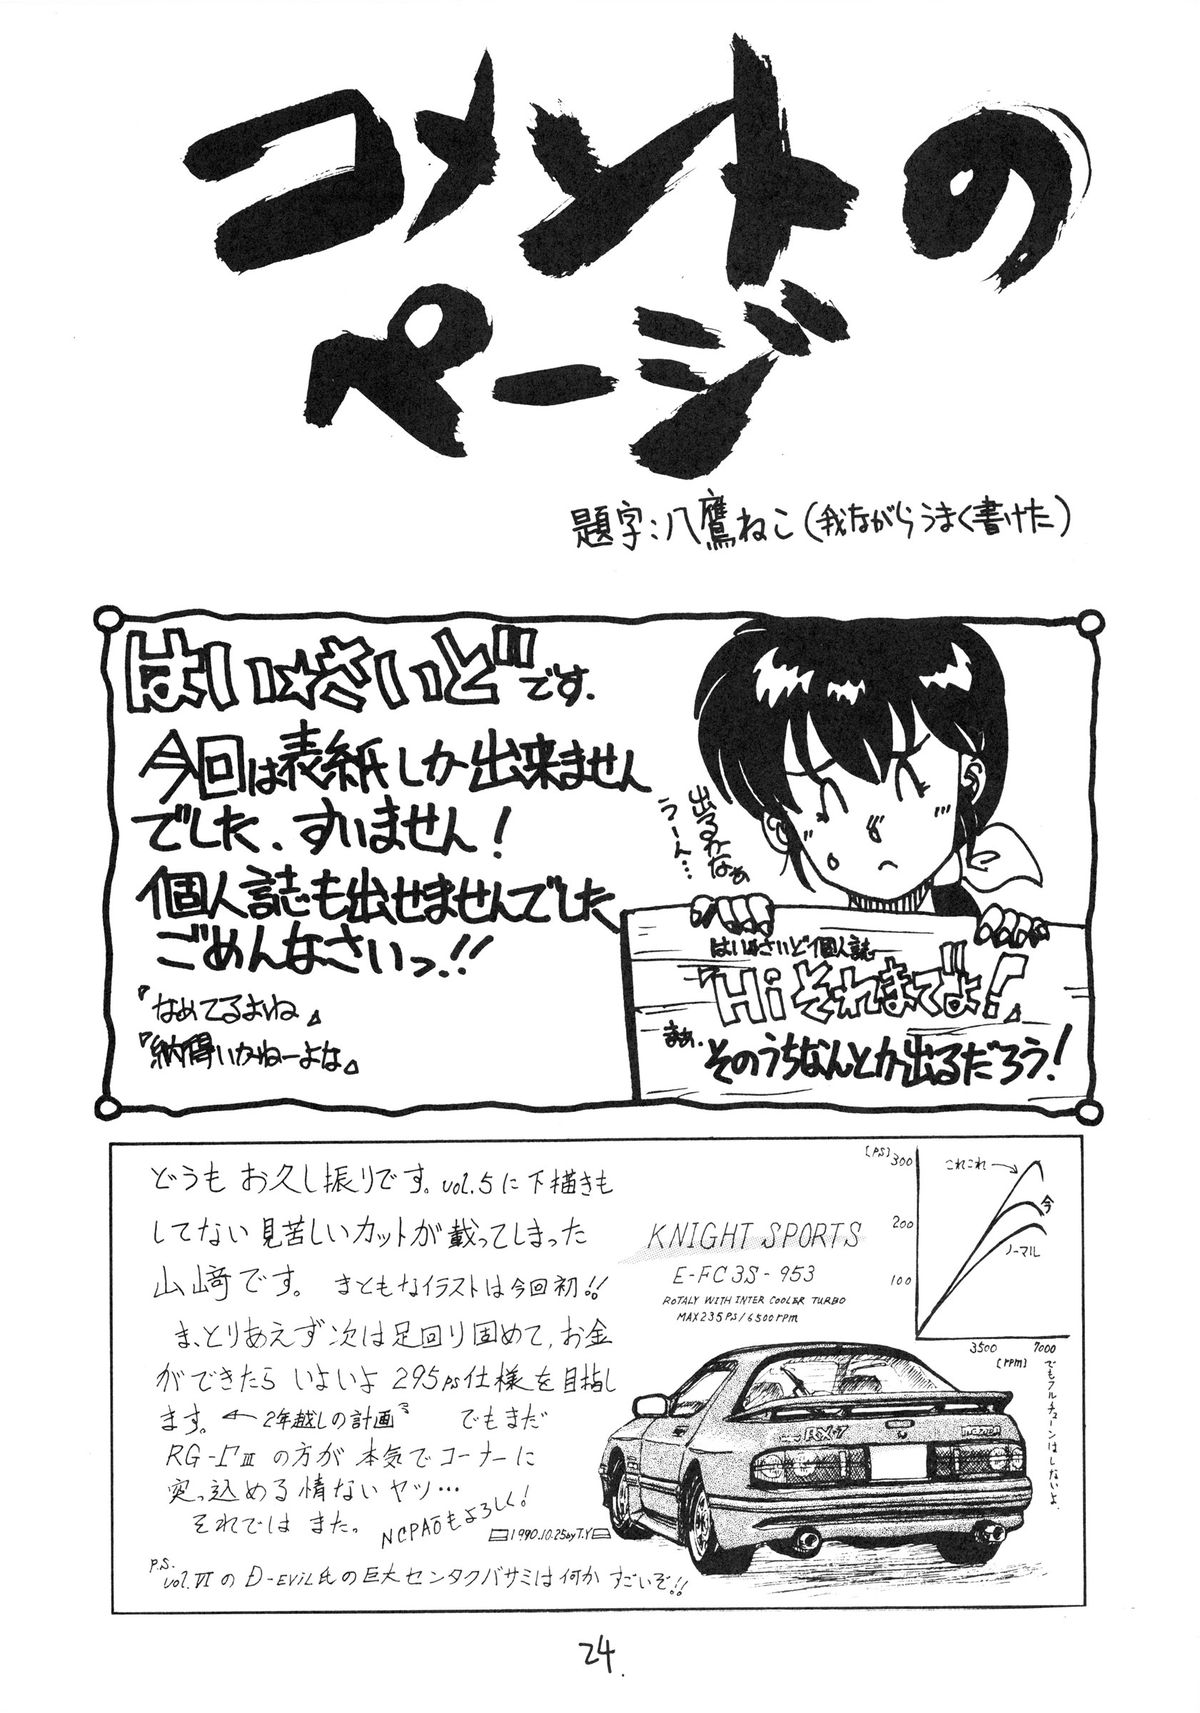 コメントの
ページ
題字：八鷹ねこ（我ながらうまく書けた）
はい☆さいど です.
今回は表紙しか出来ません
でした、すいません！
個人誌も出せませんでした
ごめんなさいっ!!
『なめてるよね』
『納得いかねーよな』
出るかなぁ
うーん…
はい☆さいど個人誌
『Hiそれまでよ!』
まぁ、
そのうちなんとか出るだろう！
どうも お久し振りです。vol.5に下描きも
してない見苦しいカットが載ってしまった
山﨑です。 まともなイラストは今回初!!
ま、とりあえず次は足回り固めて、お金
ができたら いよいよ 295ps仕様を目指し
ます。 ← 2年越しの計画 でもまだ
RG-ΓⅢの方が本気でコーナーに
突っ込める情ないヤツ…
それでは また。 NCPAOもよろしく!
1990.10.25 by T.Y
P.S.
vol.VIのD-EVIL氏の巨大センタクバサミは何かすごいぞ!!
KNIGHT SPORTS
E-FC3S-953
ROTALY WITH INTER COOLER TURBO
MAX235PS/6500rpm
[PS]
300
200
100
これこれ→
今
ノーマル
3500 7000
[rpm]
でもフルチューンはしないよ.
RX-7
mazda
24.